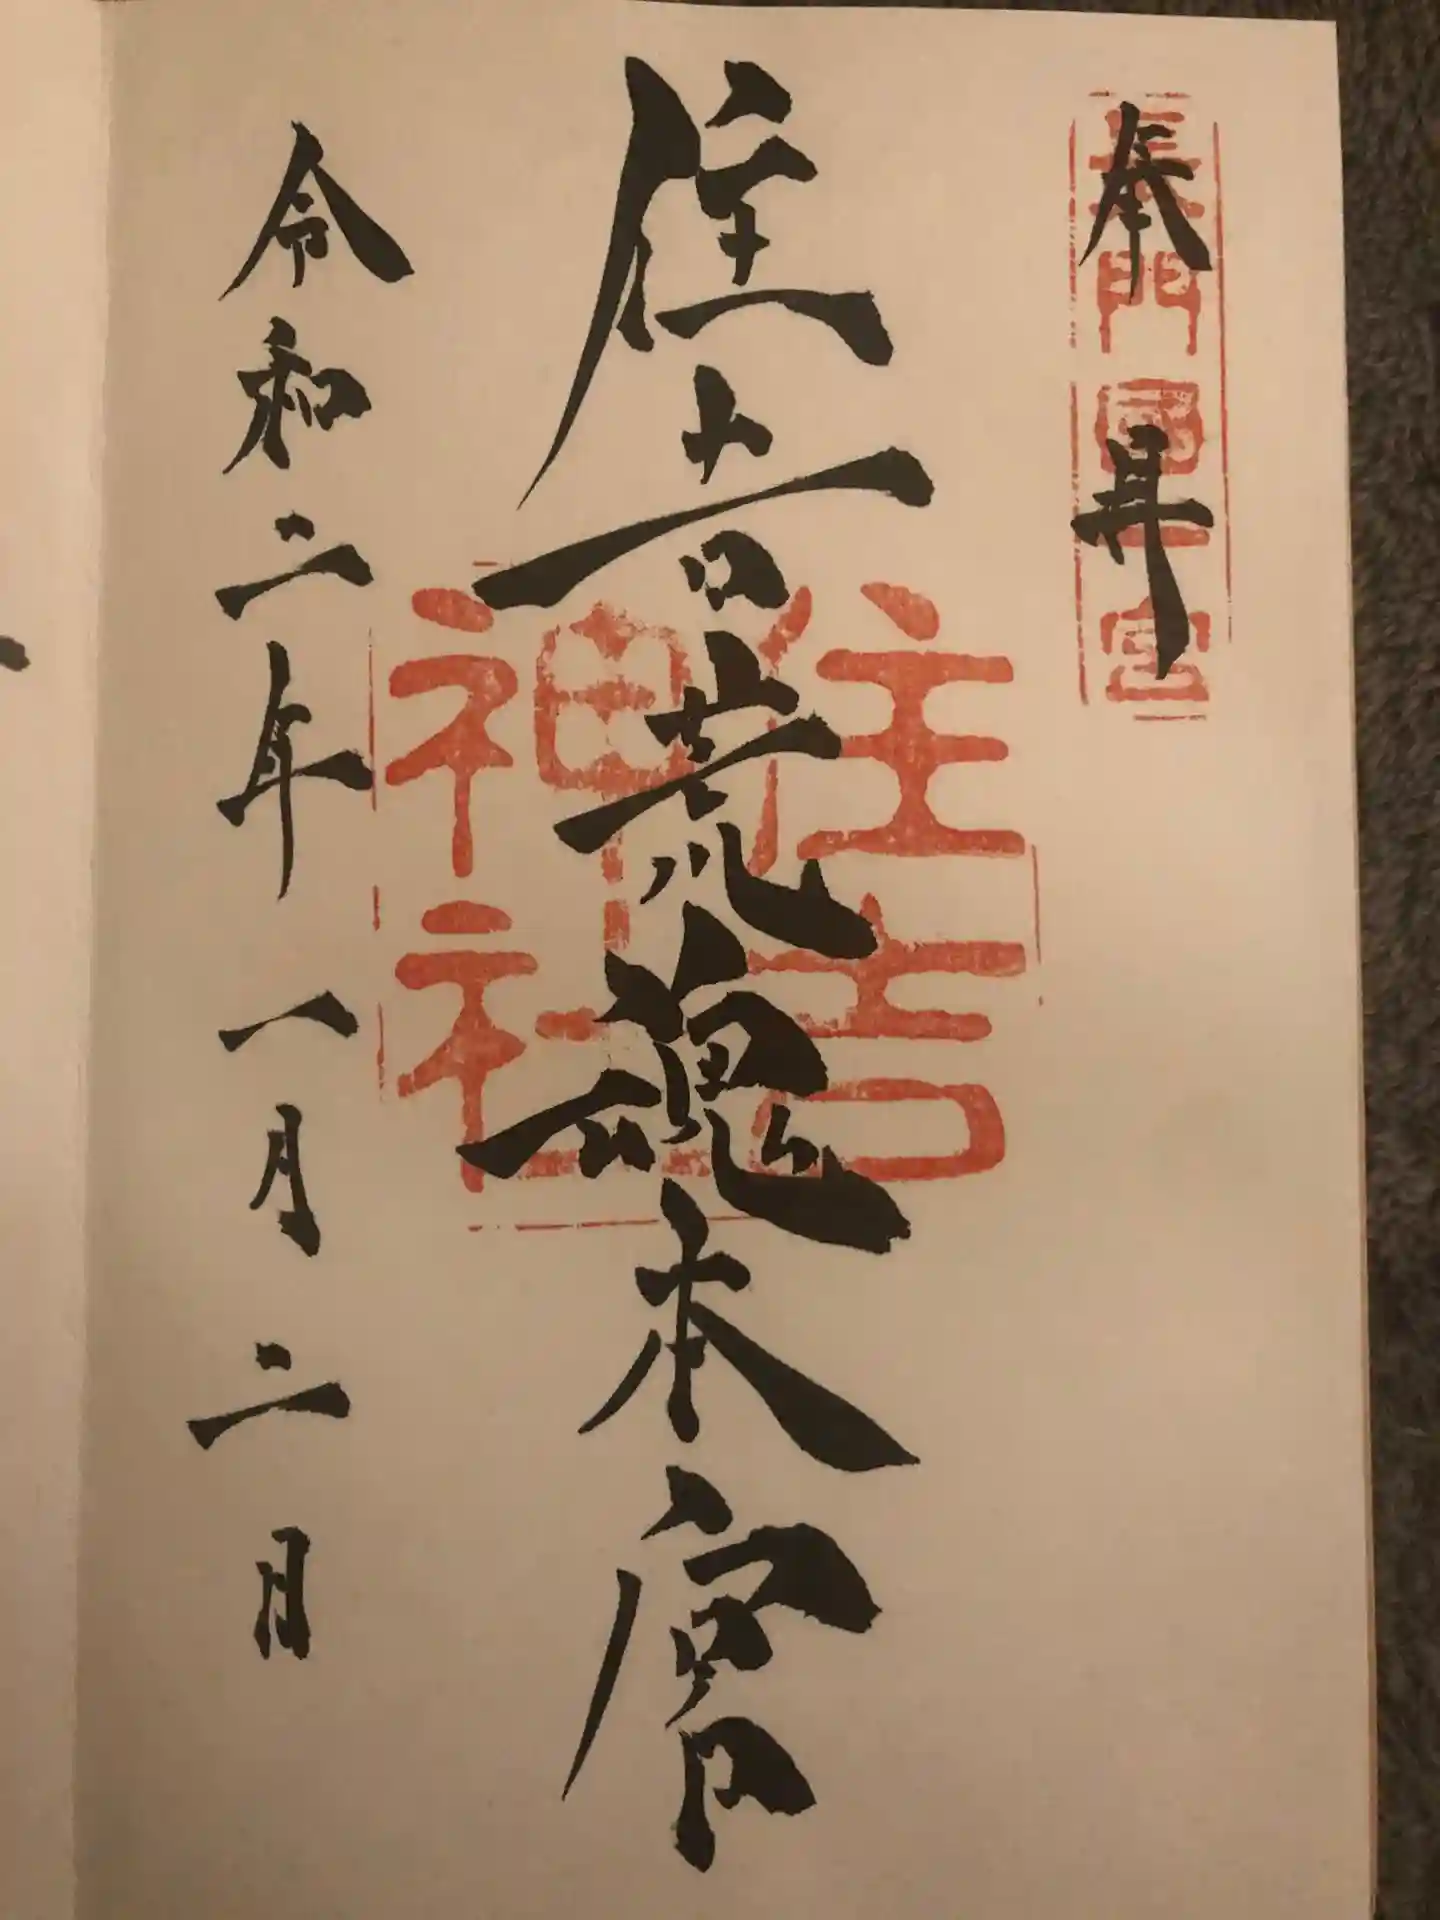 奉 拝
長門國一宮
住吉荒魂本宮
住吉
神社
令和二年一月二日